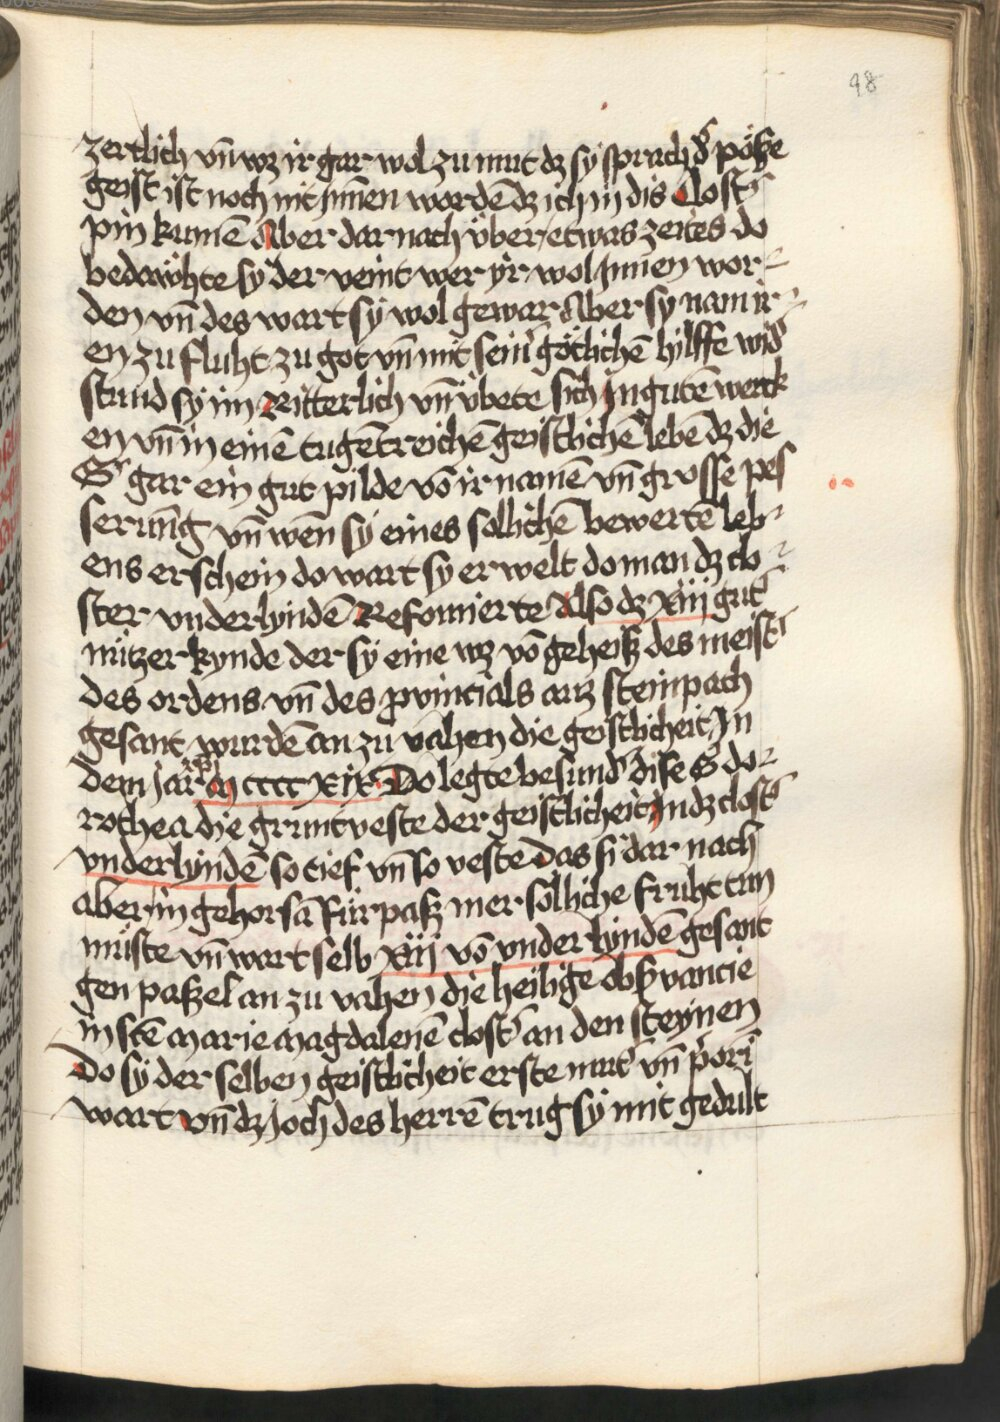 98
zertlich vn̄ wz ir gar wol zu mut dz sy sprach dˢ pösse
geist ist noch nit jnnen wordē dz ich in dis Clostˢ
pin kumē Aber dar nach über etwas zeites do
bedawhte sy der veint wer yr wol jnnen wor-
den vn̄ des wart sy wol gewar Aber sy nam ir-
en zu fluht zu got vn̄ mit seinˢ götlichē hilffe widˢ
stund sy im Ritterlich vn̄ übete sich Jn gutē werck
en vn̄ in einē tugētreichē geistlichē lebē dz die
Sʳ gar ein gut pilde vō ir namē vn̄ grosse pes
serūng vn̄ wen sy eines sollichē bewertē leb-
ens erschein do wart sy er welt do man dz clo-
ster vnderlyndē Reformierte Also dz xiij gutˢ
nützer kynde der sy eine wz vō geheiß des meistˢ
des ordens vn̄ des pvincials auz steinpach
gesant wurdē an zu vahen die geistlicheit Jn
dem jar m cccc xix Do legte besundˢ dise S do-
rothea die gruntveste der geistlicheit Jn dz clostˢ
vnderlyndē so tief vn̄ so veste Das si dar nach
aber in gehorsā fürpaß mer solliche fruht tun
müste vn̄ wart selb xiij vō vnderlyndē gesant
gen paßel an zu vahen die heilige obsˢvancie
in sctē marie magdalenē clostˢ an den steynen
Do sy der selben geistlicheit erste mutˢ vn̄ pˢorī
wart vn̄ dz joch des herrē trug sy mit gedult